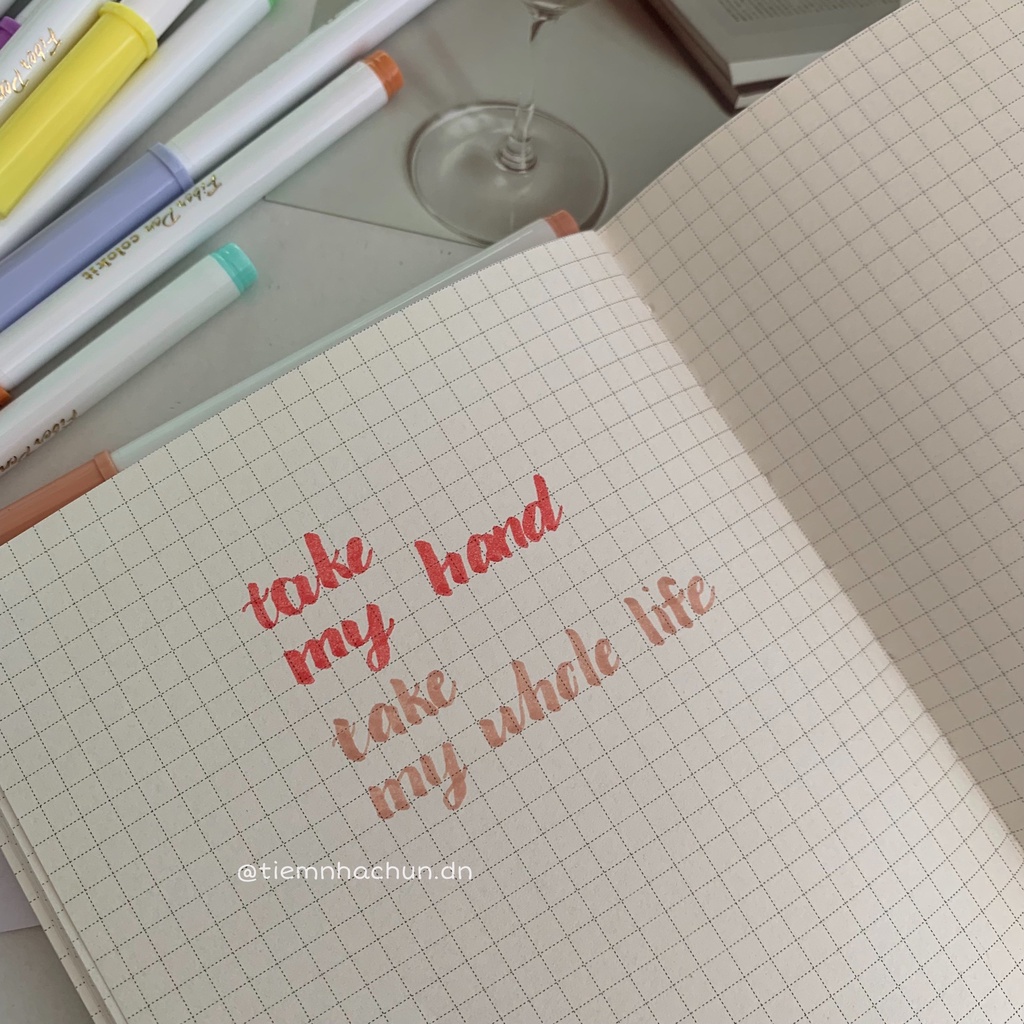 Fiber Pen
Fiber Pen colokit
Fiber Pen
take
my hand
take
my whole life
@tiemnhachun.dn